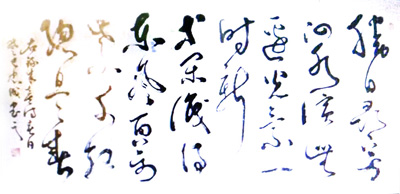 勝日尋芳
泗水濱無
邊光景一
時新
等閒識得
東風面萬
紫千紅
總是春
右錄朱熹詩春日